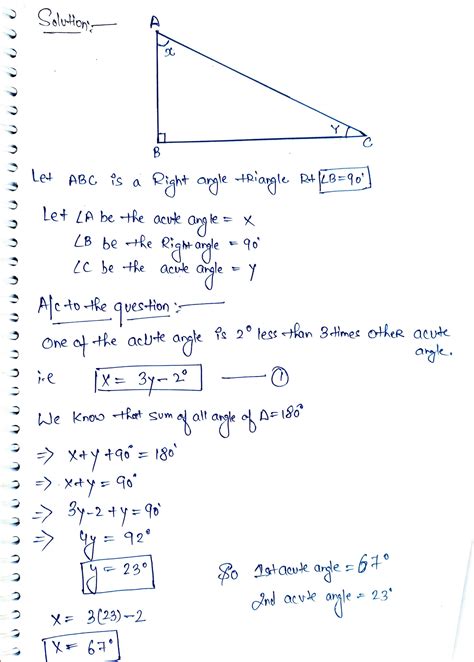 Solution:-
A
x
Y
B
C
Let ABC is a Right angle triangle Rt ∠B=90°
Let ∠A be the acute angle = x
∠B be the Right angle = 90°
∠C be the acute angle = y
A/c to the question:-
One of the acute angle is 2° less than 3 times other acute
angle.
i.e x = 3y-2° —— ①
We know that sum of all angle of Δ=180°
⇒ x+y+90° = 180°
⇒ x+y = 90°
⇒ 3y-2+y = 90°
⇒ 4y = 92°
y = 23°
So 1st acute angle = 67°
2nd acute angle = 23°
x = 3(23)-2
x = 67°